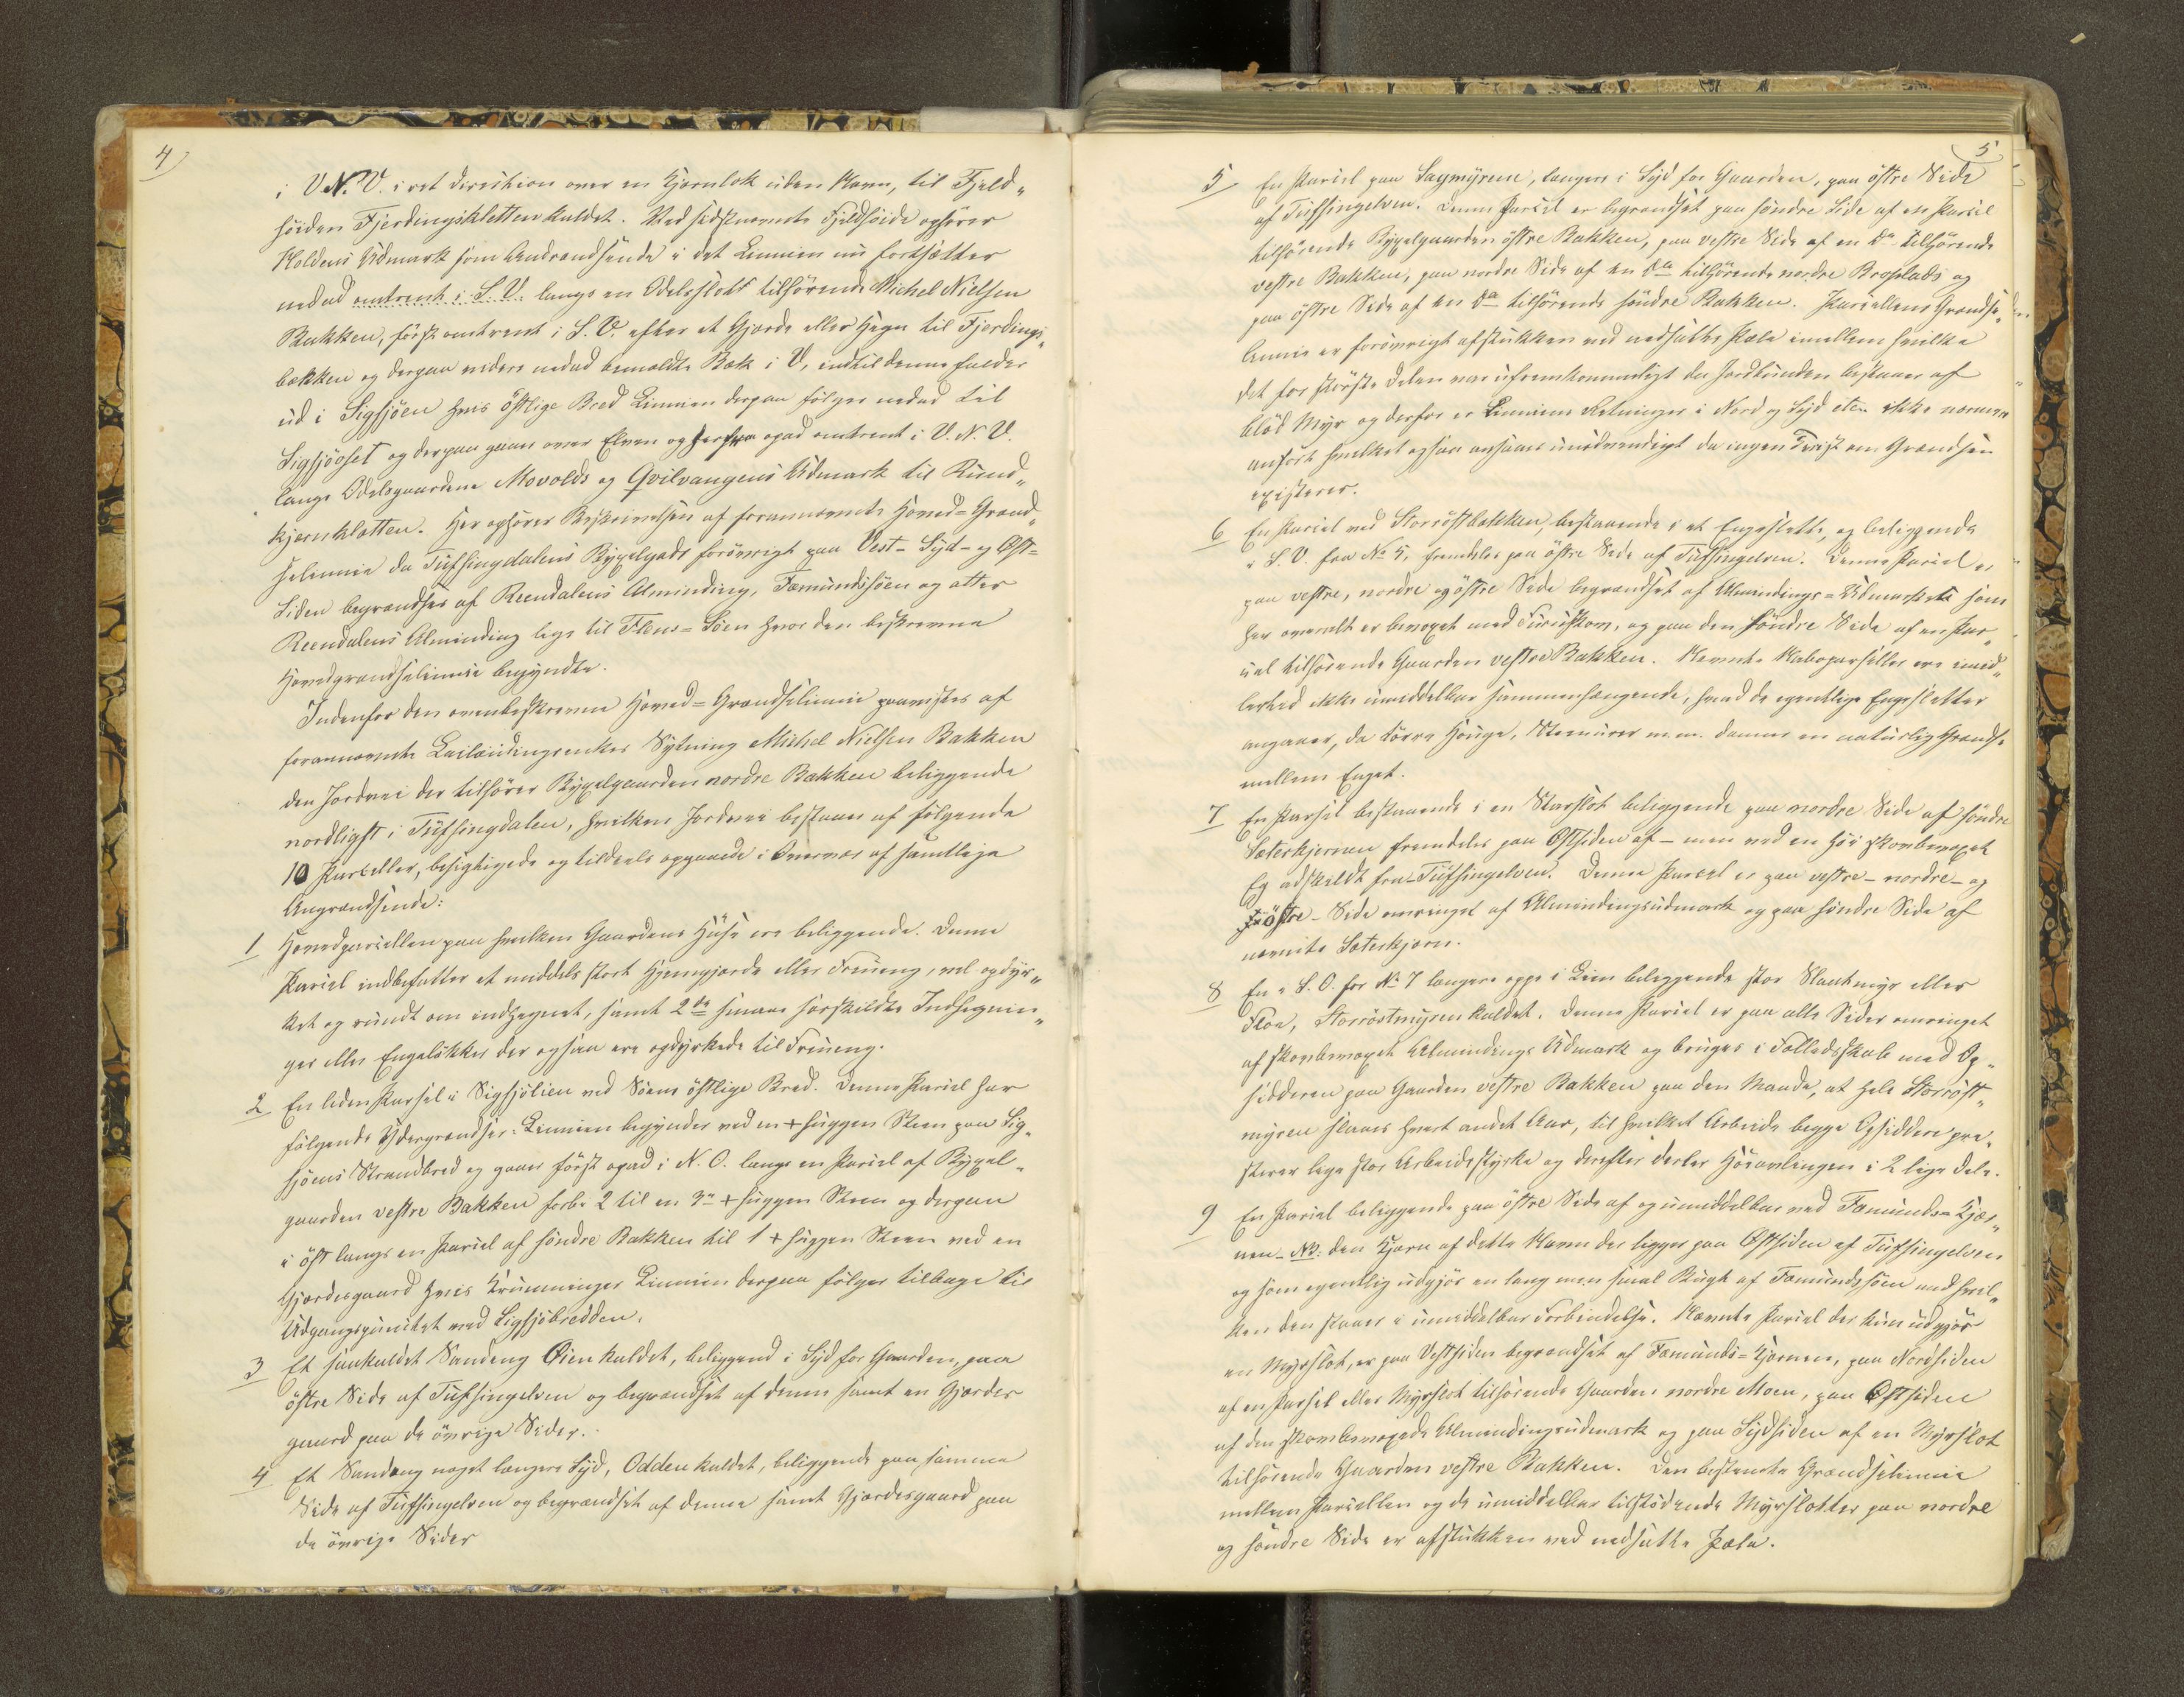 4)
i V.N.V. i ret direction over en Kjernlok uden Navn, til Fjeld„
høiden Fjerdingskletten kaldet. Ved sidstnævnte Fjeldhøide ophører
Holdens Udmark som Andrændsende i det Linnien nu fortsætter
nedad omtrent i S.V. langs en Odelsslot tilhørende Michel Nielsen
Bakken, først omtrent i S.V. efter et Gjerde eller Hegn til Fjerdings„
bækken og derpaa videre nedad bemeldte Bæk i V, indtil denne falder
ud i Sigsjöen hvis östlige Bred Linnien derpaa følger nedad til
Sigsjöoset og derpaa gaaer over Elven og derfra opad omtrent i V.N.V.
langs Odelsgaardene Movolds og Qvilvangens Udmark til Rund„
kjernkletten. Her ophører Beskrivelsen af forannævnte Hoved=Grænd„
selinnie da Tufsingdalens Bygselgods forøvrigt paa Vest- Syd- og Öst=
Siden begrændses af Reendalens Alminding, Fæmundsöen og atter
Reendalens Alminding lige til Flens=Söen hvor den beskrevne
Hovedgrændselinnie begyndte.
Indenfor den ovenbeskrevne Hoved=Grændselinnie paavistes af
forannævnte Leilændingsenkes Sytning Michel Nielsen Bakken
den Jordvei der tilhører Bygselgaarden nordre Bakken beliggende
nordligst i Tüfsingdalen, hvilken Jordvei bestaaer af følgende
10 Parceller, besigtigede og tildeels opgaaede i Overvær af samtlige
Angrændsende:
1 Hovedparcellen paa hvilken Gaardens Huse ere beliggende. Denne
Parcel indbefatter et middels stort Hjemgjorde eller Trueng, vel opdyr„
ket og rundt om indhegnet, samt 2de smaae særskildte Indhegnin„
ger eller Engeløkker der ogsaa ere opdyrkede til Trueng.
2 En liden Parsel i Sigsjölien ved Söens östlige Bred. Denne Parcel har
følgende Ydergrændser: Linnien begynder ved en + huggen Steen paa Sig„
sjöens Strandbred og gaaer først opad i N.O. langs en Parcel af Bygsel„
gaarden vestre Bakken forbi 2 til en 3die + huggen Steen og derpaa
i öst langs en Parcel af söndre Bakken til 1 + huggen Steen ved en
Gjærdesgaard hvis Krumninger Linnien derpaa følger tilbage til
Udgangspunctet ved Sigsjöbredden.
3 Et saakaldet Sandeng Öien kaldet, beliggend i Syd for Gaarden, paa
östre Side af Tufsingelven og begrændset af denne samt en Gjærdes
gaard paa de övrige Sider.
4 Et Sandeng noget længere Syd, Odden kaldet, beliggende paa samme
Side af Tufsingelven og begrændset af denne samt Gjærdesgaard paa
de övrige Sider
5
5 En Parcel paa Sagmyrene, længere i Syd for Gaarden, paa östre Side
af Tufsingelven. Denne Parcel er begrændset paa söndre Side af en Parcel
tilhörende Bygselgaarden östre Bakken, paa vestre Side af en Do tilhörende
vestre Bakken, paa nordre Side af en Do tilhörende nordre Broplads og
paa östre Side af en Do tilhörende söndre Bakken. Parcellens Grændse„
linnie er forövrigt afstukken ved nedsatte Pæle imellem hvilke
det for störste Delen var ufremkommeligt da Jordbunden bestaaer af
blöd Myr og derfor er Linniens Retninger i Nord og Syd etc. ikke nærmere
anfört hvilket ogsaa ansaaes unödvendigt da ingen Tvist om Grændsen
existerer.
6 En Parcel ved Storröstbakken, bestaaende i et Engeslette, og beliggende
i S.V. fra No 5, fremdeles paa östre Side af Tufsingelven. Denne Parcel er
paa vestre, nordre og östre Side begrændset af Almindings=Udmarker som
her overalt er bevoxet med Furuskov, og paa den söndre Side af en Par„
cel tilhörende Gaarden vestre Bakken. Nævnte Naboparseller ere imid„
lertid ikke umiddelbar sammenhængende, hvad de egentlige Engesletter
angaaer, da törre Houge, Steenurer m.m. danner en naturlig Grændse
mellem Enget.
7 En Parsel bestaaende i en Starslot beliggende paa nordre Side af söndre
Sæterkjernen fremdeles paa Östsiden af – men ved en höi skovbevoxet
Eg adskildt fra – Tüfsingelven. Denne Parcel er paa vestre- nordre- og
östre-Side omringet af Almindingsudmark og paa söndre Side af
nævnte Sæterkjern.
8 En i S.O. for No 7 længere oppe i Lien beliggende stor Slaatmyr eller
Floe, Storröstmyren kaldet. Denne Parcel er paa alle Sider omringet
af skovbevoxet Almindings Udmark og bruges i Fælledsskab med Op„
sidderen paa Gaarden vestre Bakken paa den Maade, at hele Storröst„
myren slaaes hvert andet Aar, til hvilket Arbeide begge Opsiddere præ„
sterer lige stor Arbeidsstyrke og derefter deeler Höavlingen i 2 lige Dele.
9 En Parcel beliggende paa östre Side af og umiddelbar ved Fæmunds=Kjær„
nen – NB. den Kjærn af dette Navn der ligger paa Östsiden af Tüfsingelven
og som egentlig udgjör en lang men smal Bugt af Fæmundssöen med hvil„
ken den staaer i umiddelbar Forbindelse. Nævnte Parcel der kun udgjör
en Myrslot, er paa Vestsiden begrændset af Fæmunds=Kjernen, paa Nordsiden
af en Parsel eller Myrslot tilhörende Gaarden nordre Moen, paa Östsiden
af den skovbevoxede Almindingsudmark og paa Sydsiden af en Myrslot
tilhörende Gaarden vestre Bakken. Den bestemte Grændselinnie
mellem Parcellen og de umiddelbar tilstödende Myrslotter paa nordre
og söndre Side er afstukken ved nedsatte Pæle.